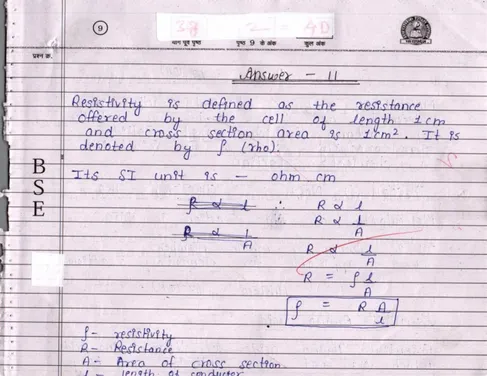 9
38 2 40
याग पूर्व पृष्ठ पृष्ठ 9 के अंक कुल अंक
प्रश्न क्र.
Answer - 11
Resistivity is defined as the resistance
offered by the cell of length 1cm
and cross section area is 1cm². It is
denoted by ρ (rho).
Its SI unit is — ohm cm
R α l ∴ R α l
R α 1/A
R α l/A R α l/A
R = ρ l/A
ρ = R A/l
B
S
E
ρ - resistivity
R - Resistance
A - Area of cross section
l - length of conductor